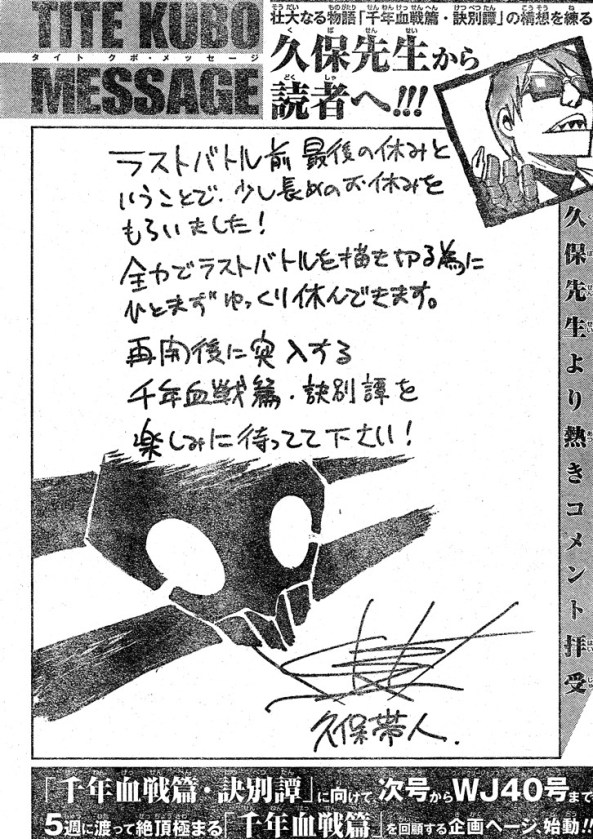 TITE KUBO
タイト クボ・メッセージ
MESSAGE
壮大なる物語「千年血戦篇・訣別譚」の構想を練る
久保先生から
読者へ!!!
ラストバトル前 最後の休みと
いうことで、少し長めのお休みを
もらいました!
全力でラストバトルを描き切る為に
ひとまずゆっくり休んできます。
再開後に突入する
千年血戦篇・訣別譚を
楽しみに待ってて下さい!
久保帯人.
久保先生より熱きコメント拝受
「千年血戦篇・訣別譚」に向けて次号からWJ40号まで
5週に渡って絶頂極まる「千年血戦篇」を回顧する企画ページ始動!!